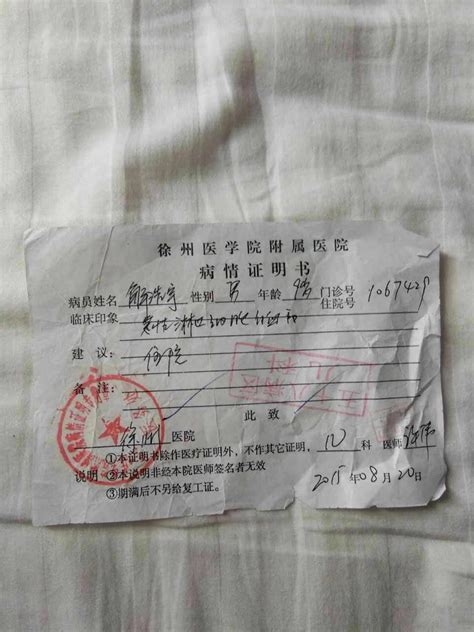 徐州医学院附属医院
病情证明书
病员姓名 性别 男 年龄 门诊号 住院号 1067429
临床印象 急性淋巴细胞白血病
建议： 住院
备注：
此致
徐州 医院
①本证明书除作医疗证明外，不作其它证明， 科 医师
说明 ②本说明非经本院医师签名者无效
③期满后不另给复工证。
2015年08月20日